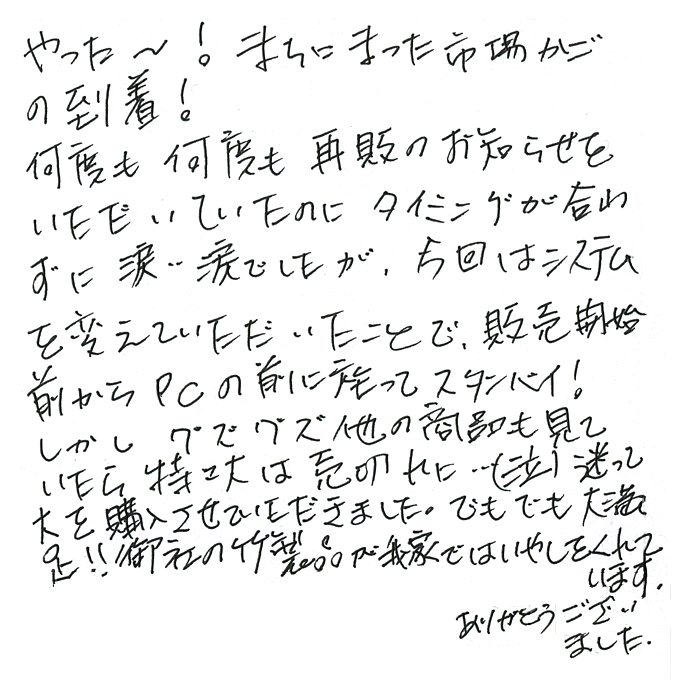 やった〜！まちにまった市場かご
の到着！
何度も何度も再販のお知らせを
いただいていたのにタイミングが合わ
ずに涙‥涙でしたが、今回はシステム
を変えていただいたことで、販売開始
前からPCの前に座ってスタンバイ！
しかしグズグズ他の商品も見て
いたら特々大は売切れに‥（泣）迷って
大を購入させていただきました。でもでも大満
足！！御社の竹製品が我家ではいやしをくれて
います。
ありがとうござい
ました。